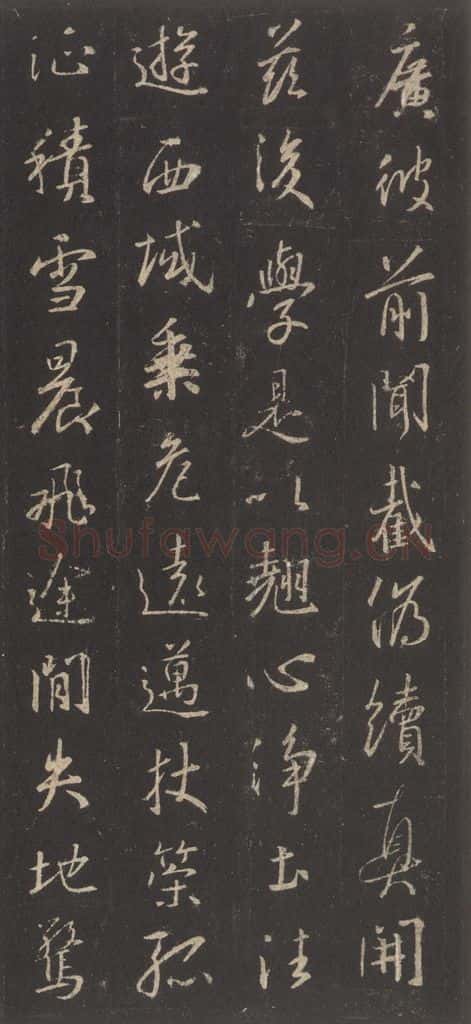 廣彼前聞截偽續真開
茲後學是以翹心淨土法
遊西域乘危遠邁杖策孤
征積雪晨飛途間失地驚
Shufawang.cn